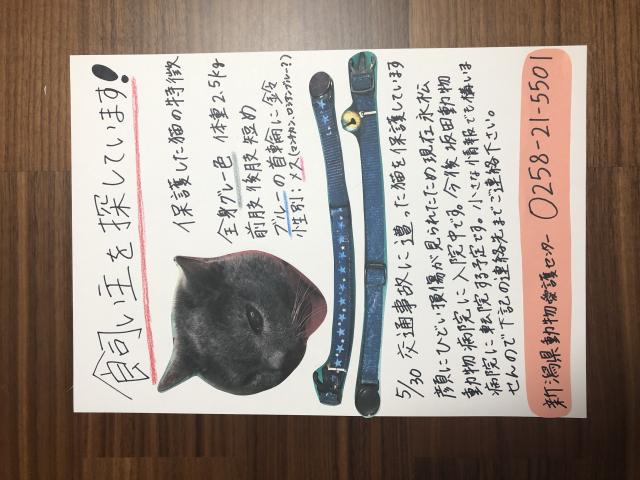 飼い主を探しています!
保護した猫の特徴
全身グレー色 体重2.5kg
前肢後肢短め
ブルーの首輪に鈴
性別:メス(マンチカン、ロシアンブルー?)
5/30 交通事故に遭った猫を保護しています
顔にひどい損傷が見られたため現在永松
動物病院に入院中です。今後坂田動物
病院に転院する予定です。小さな情報でも構いま
せんので下記の連絡先までご連絡下さい。
新潟県動物愛護センター 0258-21-5501